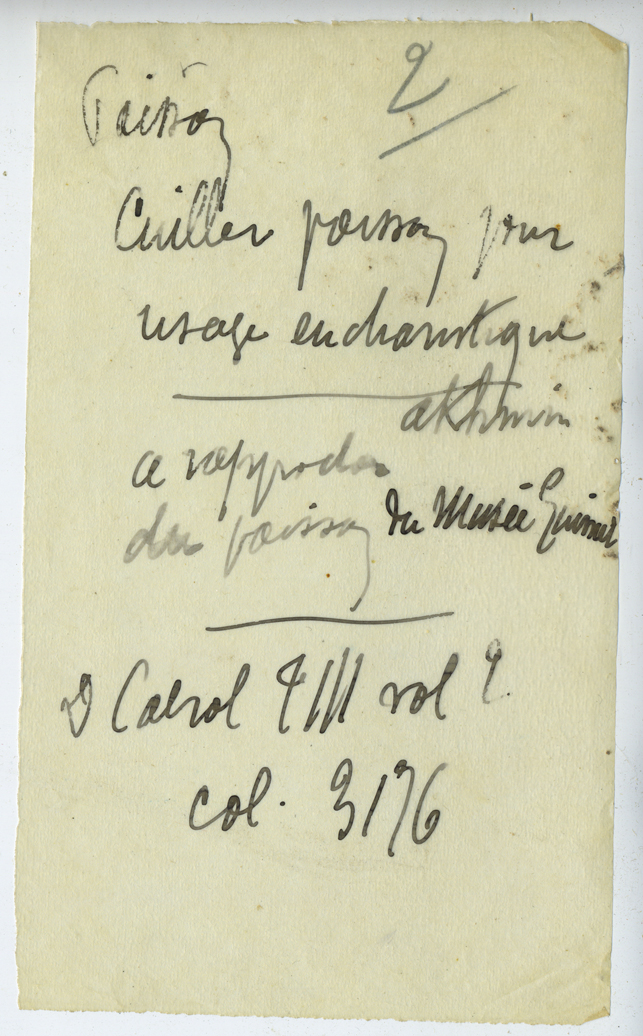 2
Poisson
Cuiller poisson pour
usage eucharistique
akhmin
a rapprocher
du poisson du Musée Guimet
D Cabrol T III vol 2
col. 3176